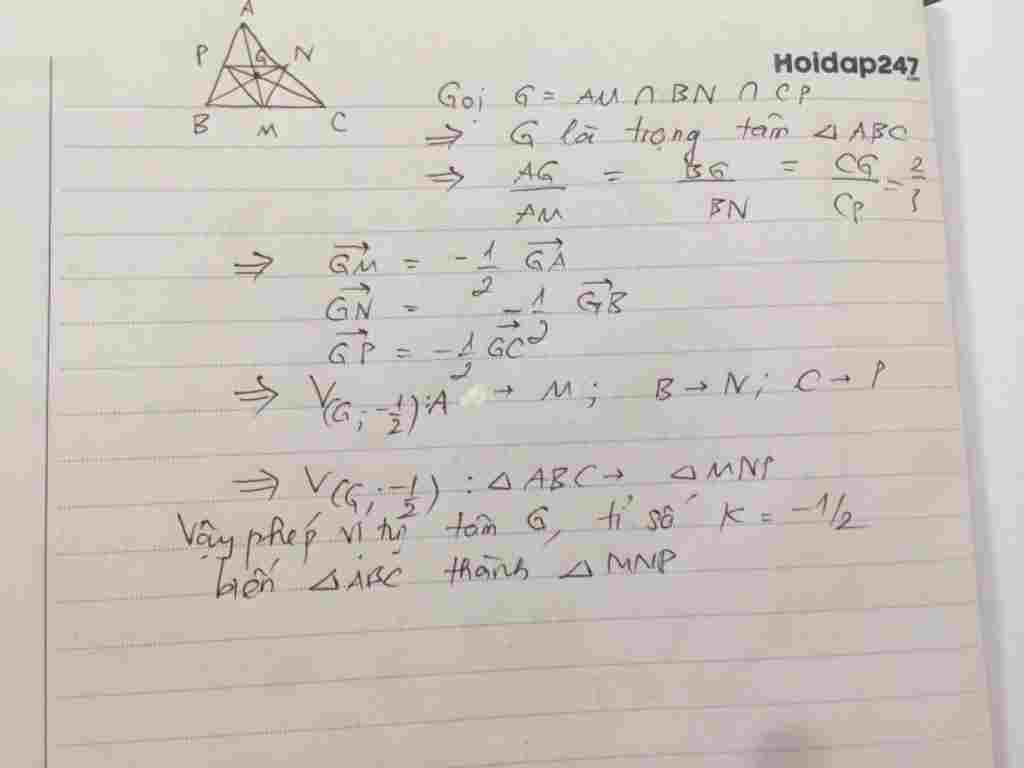 A
P G N
B M C
Hoidap247
Gọi G = AM ∩ BN ∩ CP
⇒ G là trọng tâm △ABC
⇒ AG/AM = BG/BN = CG/CP = 2/3
⇒ \vec{GM} = -1/2 \vec{GA}
\vec{GN} = -1/2 \vec{GB}
\vec{GP} = -1/2 \vec{GC}
⇒ V(G; -1/2): A → M; B → N; C → P
⇒ V(G; -1/2): △ABC → △MNP
Vậy phép vị tự tâm G, tỉ số K = -1/2
biến △ABC thành △MNP